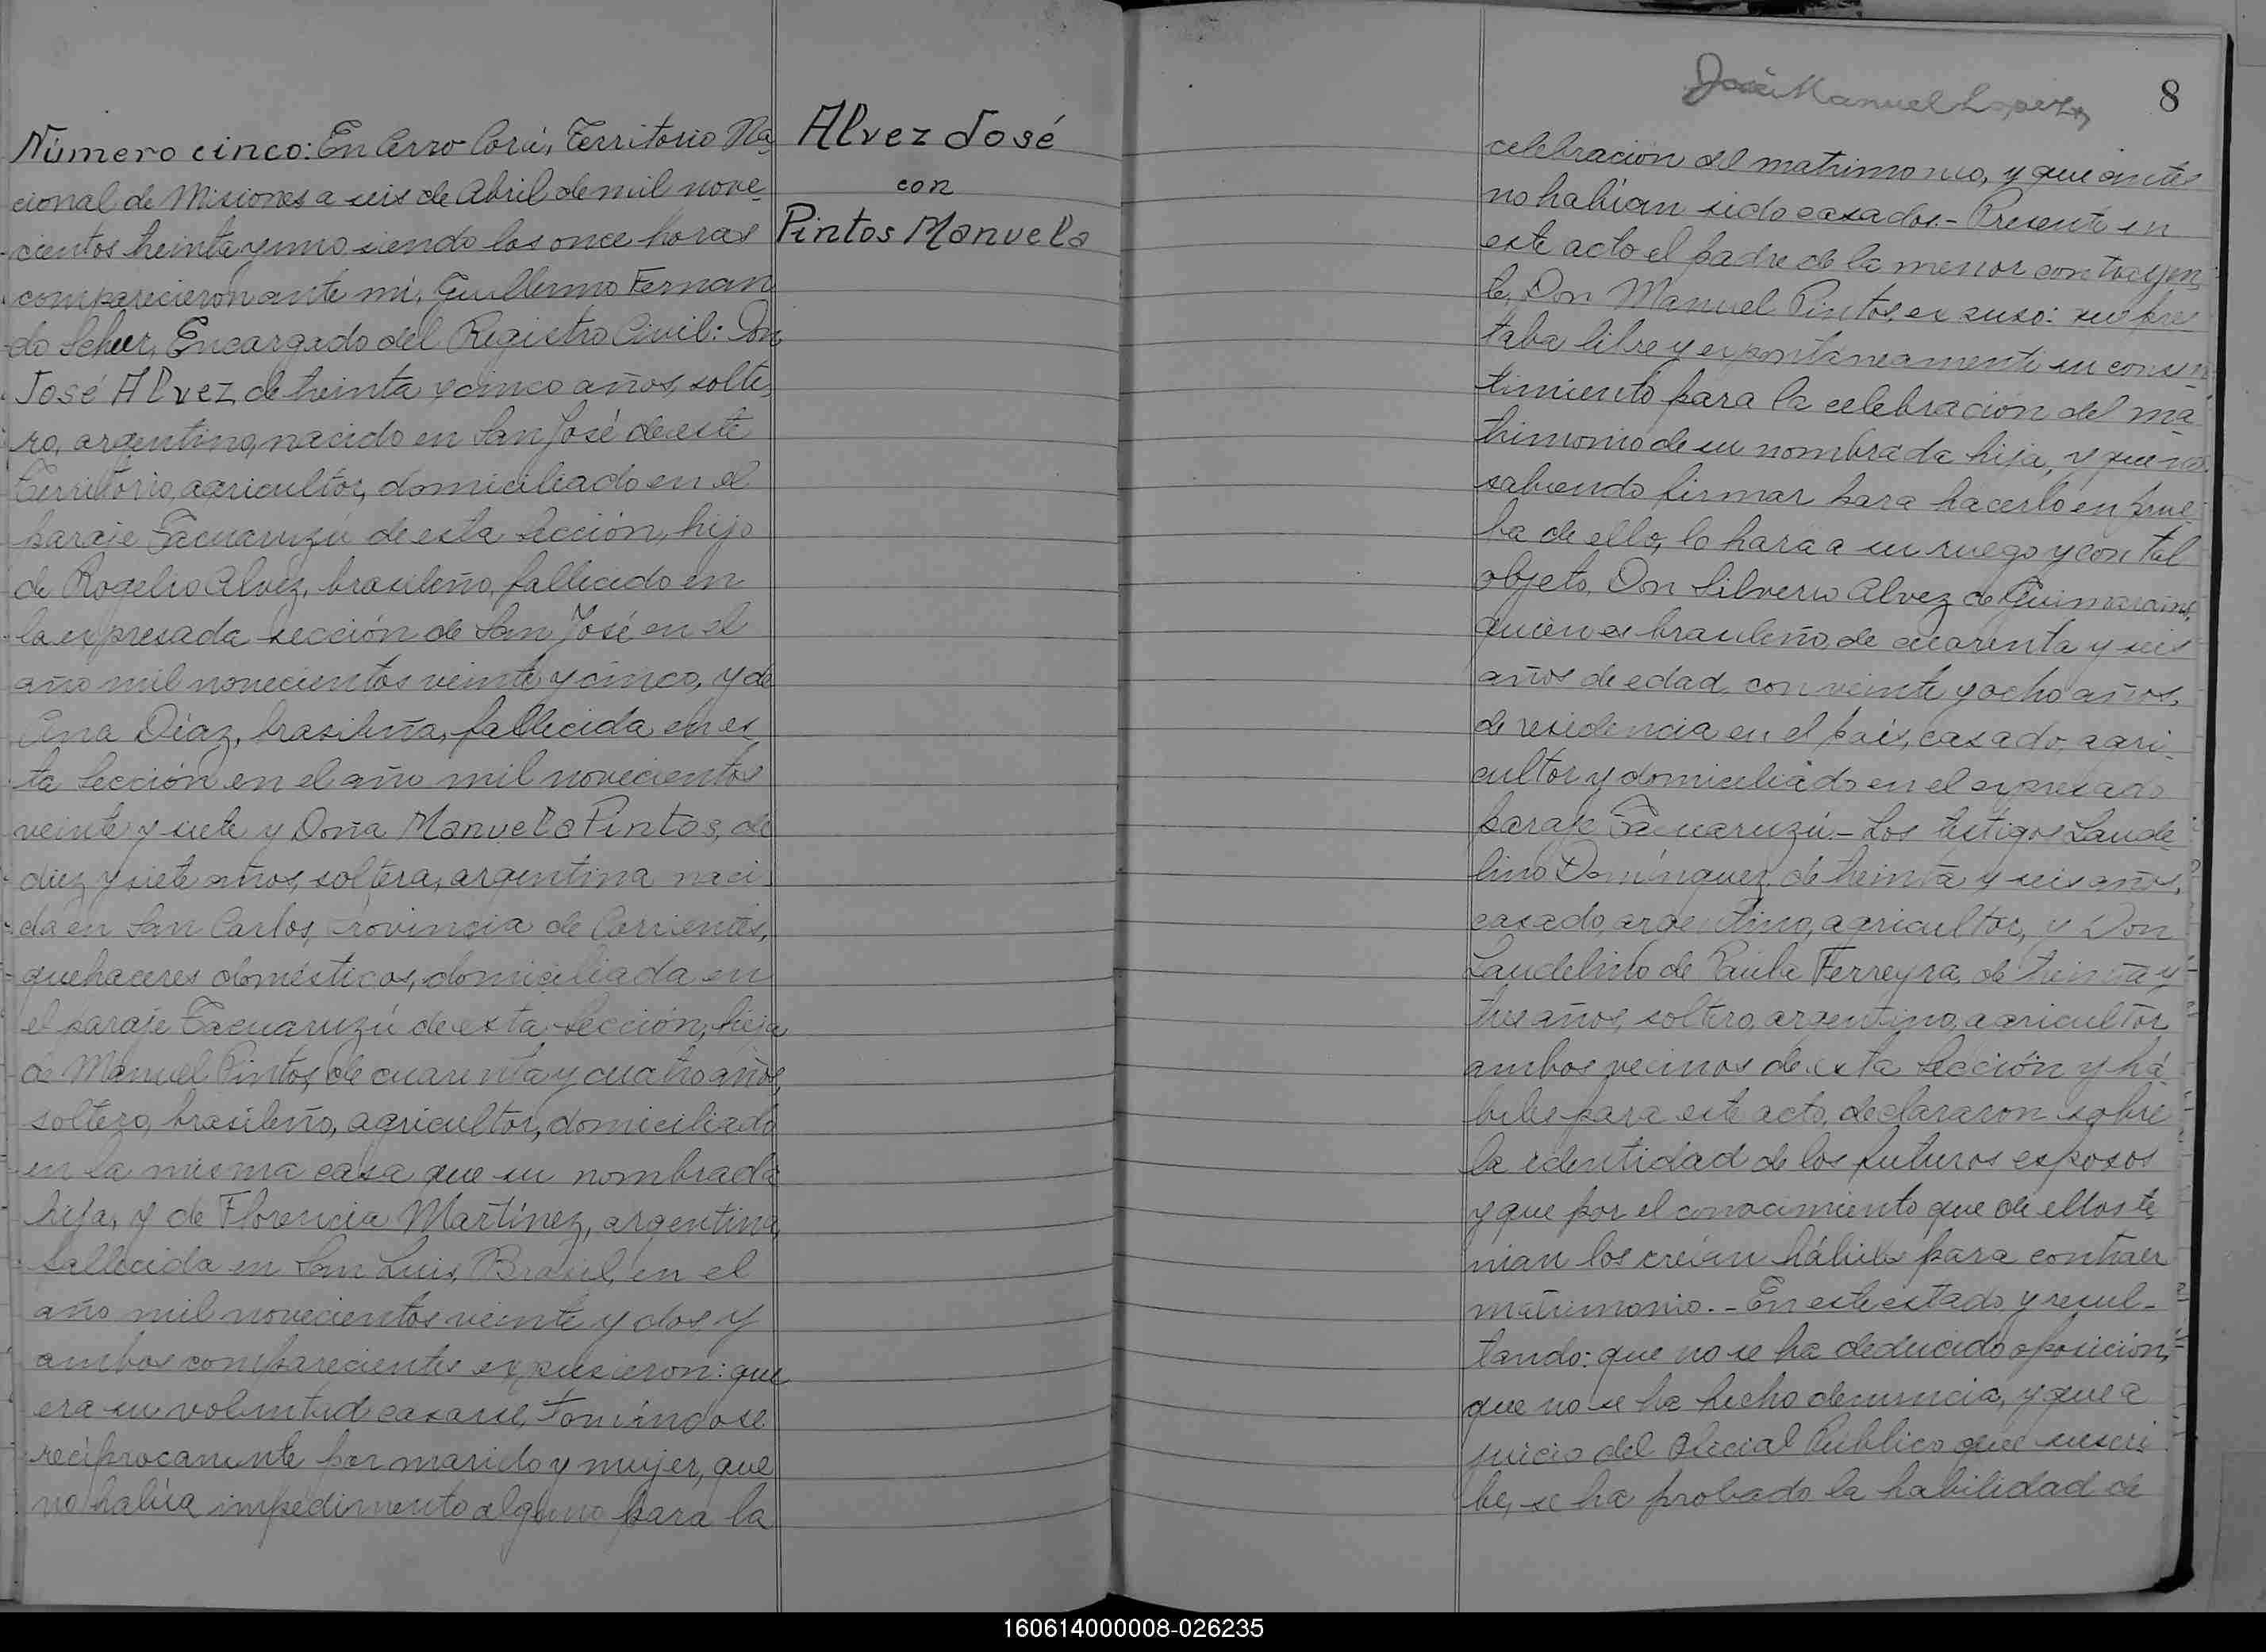 Número cinco: En Cerro Corá, Territorio Na-
cional de Misiones a seis de Abril de mil nove-
cientos treinta y uno siendo las once horas
comparecieron ante mí, Guillermo Fernan
do Scheer, Encargado del Registro Civil: Don
José Alvez, de treinta y cinco años, solte-
ro, argentino, nacido en San José de este
Territorio, agricultor, domiciliado en el
paraje Tacuaruzú de esta Sección, hijo
de Rogelio Alvez, brasileño, fallecido en
la expresada sección de San José en el
año mil novecientos veinte y cinco, y de
Díaz, brasileña, fallecida en es-
ta Sección en el año mil novecientos
veinte y siete y Doña Manuela Pintos, de
diez y siete años, soltera, argentina naci-
da en San Carlos, Provincia de Corrientes,
quehaceres domésticos, domiciliada en
el paraje Tacuaruzú de esta Sección, hija
de Manuel Pintos, de cuarenta y cuatro años,
soltero, brasileño, agricultor, domiciliado
en la misma casa que su nombrada
hija, y de Florencia Martínez, argentina,
fallecida en San Luis, Brasil, en el
año mil novecientos veinte y dos y
ambos comparecientes expusieron: que
era su voluntad casarse, tomándose
recíprocamente por marido y mujer, que
no había impedimento alguno para la
Alvez José
con
Pintos Manuela
José Manuel Lopez
8
celebración del matrimonio, y que antes
no habían sido casados.- Presente en
este acto el padre de la menor contrayen-
te, Don Manuel Pintos, expuso: que pres
taba libre y expontáneamente su consen-
timiento para la celebración del ma-
trimonio de su nombrada hija, y que no
sabiendo firmar para hacerlo en prue-
ba de ello, lo hará a su ruego y con tal
objeto, Don Silverio Alvez de Guimaraens,
quien es brasileño, de cuarenta y seis
años de edad, con veinte y ocho años,
de residencia en el país, casado, agri-
cultor y domiciliado en el expresado
paraje Tacuaruzú.- Los testigos Laude-
lino Domínguez, de treinta y seis años,
casado, argentino, agricultor, y Don
Laudelino de Paula Ferreyra, de treinta y
tres años, soltero, argentino, agricultor
ambos vecinos de esta Sección y há-
biles para este acto, declararon sobre
la identidad de los futuros esposos
y que por el conocimiento que de ellos te-
nían los creían hábiles para contraer
matrimonio.- En este estado y resul-
tando: que no se ha deducido oposición,
que no se ha hecho denuncia, y que a
juicio del Oficial Público que suscri-
be, se ha probado la habilidad de
160614000008-026235